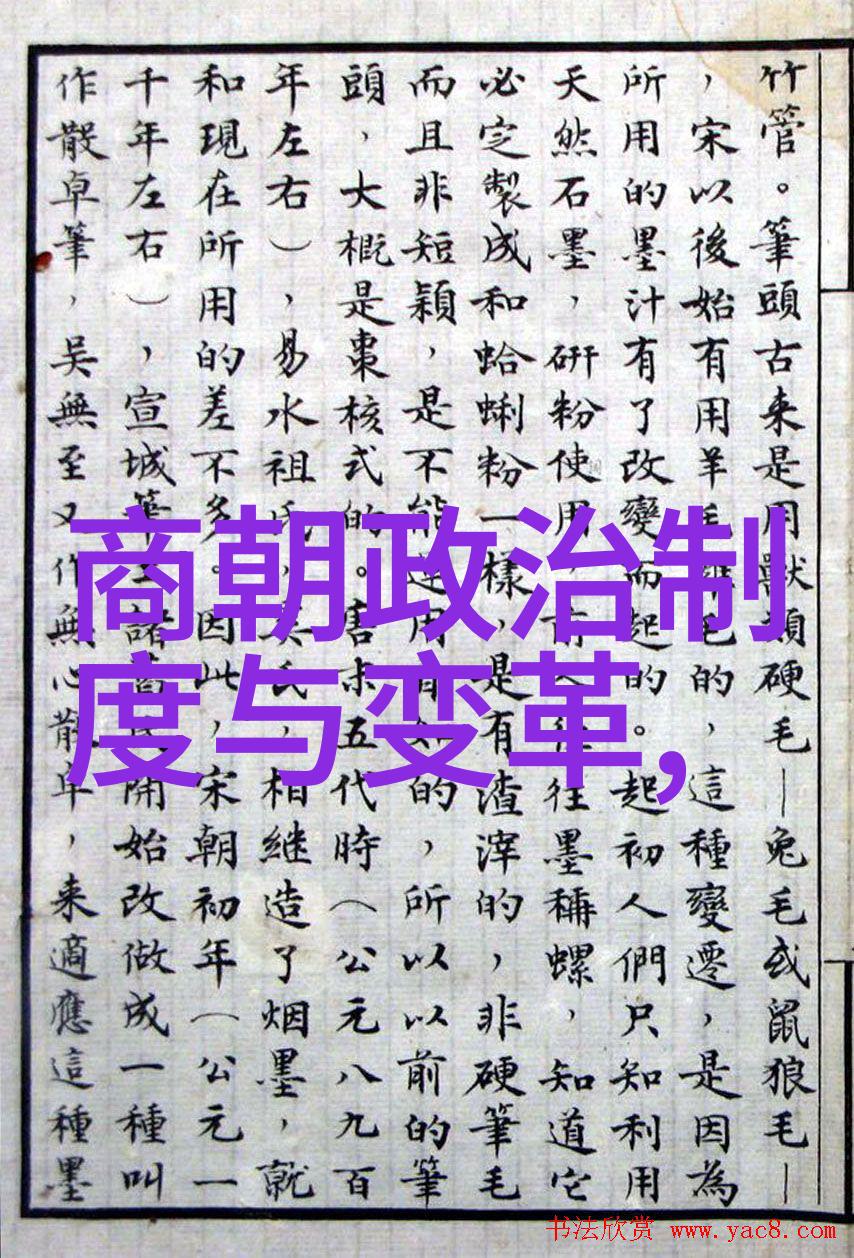 竹管。筆頭古来是用獸類硬毛—兔毛或鼠狼毛—
，宋以後始有用羊毛毛的，這種變遷，是因為
所用的墨汁有了改變而起的。起初人們只知利用
天然石墨，研粉使用，前往往墨稱螺，知道它
必定製成和蛤蜊粉一樣，是有渣滓的，非硬筆毛
而且非短穎，是不能用的，所以以前的筆
頭，大概是棗核式的。唐末五代時（公元八九百
年左右），易水祖氏，氏，相継造了烟墨，就
和現在所用的差不多。因此，宋朝初年（公元一
千年左右），宣城筆諸開始改做成一種叫
作散卓筆，吴無至又作無心散卓，来適應這種墨
商朝政治制
度与变革,
书法欣赏 www.yac8.com